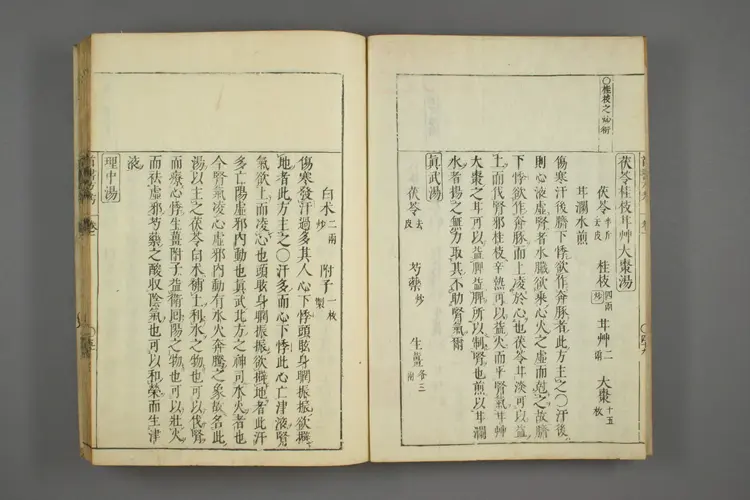 ○桂枝之如術
茯苓桂枝甘艸大棗湯
茯苓半斤去皮 桂枝四兩 甘艸二兩 大棗十五枚
甘瀾水煎
傷寒汗後臍下悸欲作奔豚者此方主之○汗後
則心液虛腎者水臟欲乘心火之虛而尅之故臍
下悸欲作奔豚而上凌於心也茯苓甘淡可以益
土而伐腎邪桂枝辛熱可以益火而平腎氣甘艸
大棗之甘可以益脾益脾所以制腎也煎以甘瀾
水者揚之無力取其不助腎氣爾
眞武湯
茯苓去皮 芍藥炒 生薑各三兩
白朮二兩炒 附子一枚製
傷寒發汗過多其人心下悸頭眩身瞤振振欲擗
地者此方主之○汗多而心下悸此心亡津液腎
氣欲上而凌心也頭眩身瞤振振欲擗地者此汗
多亡陽虛邪內動也眞武北方之神司水火者也
今腎氣凌心虛邪內動有水火奔騰之象故名此
湯以主之茯苓白朮補土利水之物也可以伐腎
而療心悸生薑附子益衛回陽之物也可以壯火
而祛虛邪芍藥之酸收陰氣也可以和榮而生津
液
理中湯